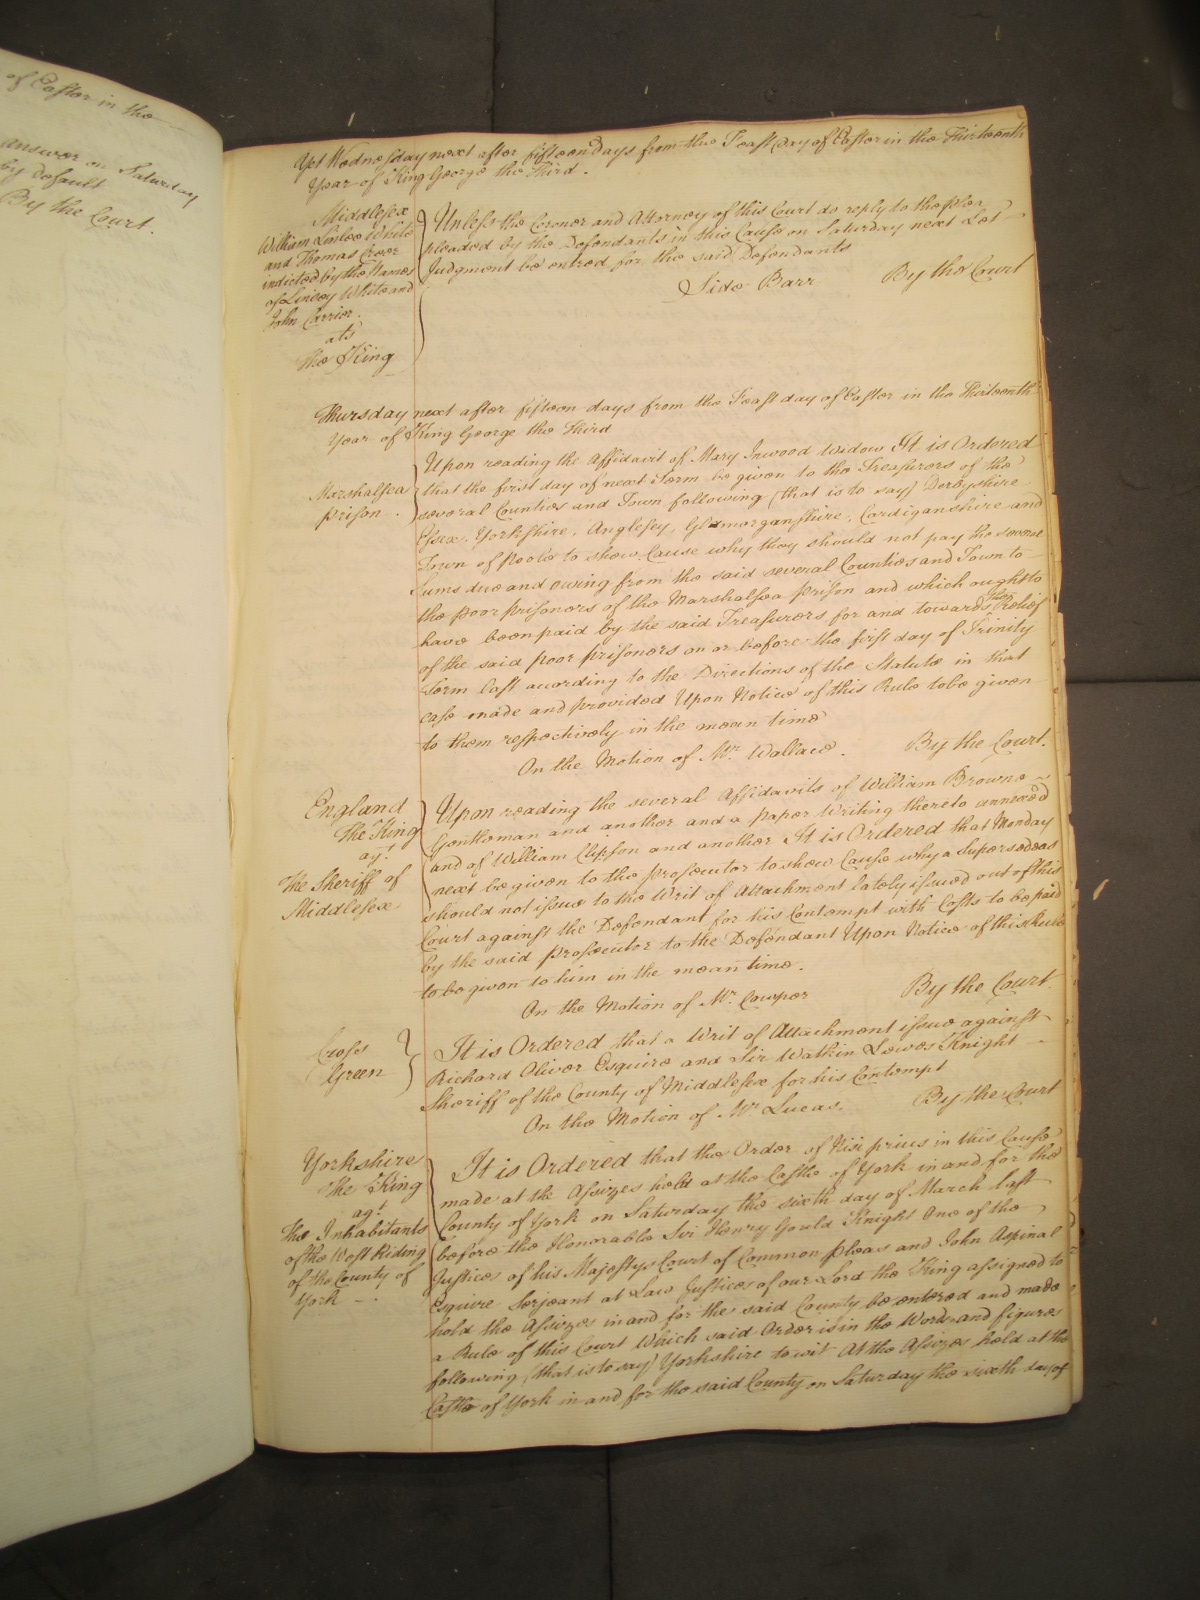 of Easter in the
answer on Saturday
by default
By the Court.
Yet Wednesday next after fifteen Days from the Feast Day of Easter in the Thirteenth
Year of King George the Third.
Middlesex
William Linsee White
and Thomas Creer
indicted by the Names
of Linsey White and
John Carrier.
ats
The King
Unless the Coroner and Attorney of this Court do reply to the plea
pleaded by the Defendants in this Cause on Saturday next Let
Judgment be entred for the said Defendants
Side Barr By the Court
Thursday next after fifteen days from the Feast day of Easter in the Thirteenth
Year of King George the Third
Marshalsea
prison.
Upon reading the Affidavit of Mary Inwood Widow It is Ordered
that the first day of next Term be given to the Treasurers of the
several Counties and Town following (that is to say) Derbyshire
Essex, Yorkshire, Anglesey, Glamorganshire, Cardiganshire and
Town of Poole to shew Cause why they should not pay the several
Sums due and owing from the said several Counties and Town to
the poor prisoners of the Marshalsea prison and which ought to
have been paid by the said Treasurers for and towards the Relief
of the said poor prisoners on or before the first day of Trinity
Term last according to the Directions of the Statute in that
case made and provided Upon Notice of this Rule to be given
to them respectively in the mean time
On the Motion of Mr. Wallace. By the Court.
England
The King
agt.
The Sheriff of
Middlesex
Upon reading the several Affidavits of William Browne
Gentleman and another and a paper Writing thereto annexed
and of William Clipson and another It is Ordered that Monday
next be given to the prosecutor to shew Cause why a Supersedeas
should not issue to the Writ of Attachment lately issued out of this
Court against the Defendant for his Contempt with Costs to be paid
by the said prosecutor to the Defendant Upon Notice of this Rule
to be given to him in the mean time.
On the Motion of Mr. Cowper By the Court.
Cross
Green
It is Ordered that a Writ of Attachment issue against
Richard Oliver Esquire and Sir Watkin Lewes Knight
Sheriff of the County of Middlesex for his Contempt
On the Motion of Mr. Lucas. By the Court
Yorkshire
The King
agt.
The Inhabitants
of the West Riding
of the County of
York
It is Ordered that the Order of Nisi prius in this Cause
made at the Assizes held at the Castle of York in and for the
County of York on Saturday the sixth day of March last
before the Honorable Sir Henry Gould Knight One of the
Justices of his Majestys Court of Common pleas and John Aspinal
Esquire Serjeant at Law Justices of our Lord the King assigned to
hold the Assizes in and for the said County be entered and made
a Rule of this Court Which said Order is in the Words and figures
following (that is to say) Yorkshire to wit At the Assizes held at the
Castle of York in and for the said County on Saturday the sixth day of